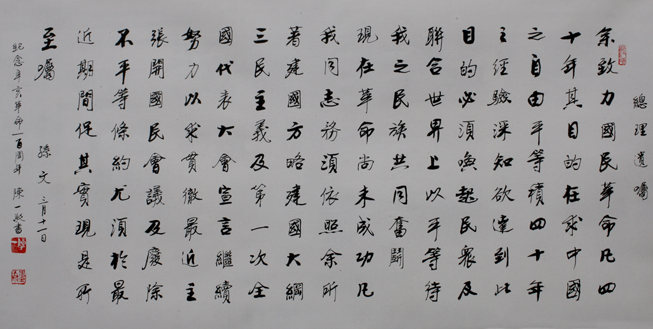 總理遺囑
余致力國民革命凡四
十年其目的在求中國
之自由平等積四十年
之經驗深知欲達到此
目的必須喚起民衆及
聯合世界上以平等待
我之民族共同奮鬪
現在革命尚未成功凡
我同志務須依照余所
著建國方略建國大綱
三民主義及第一次全
國代表大會宣言繼續
努力以求貫徹最近主
張開國民會議及廢除
不平等條約尤須於最
近期間促其實現是所
至囑 孫文 三月十一日
紀念辛亥革命一百周年 陳一書